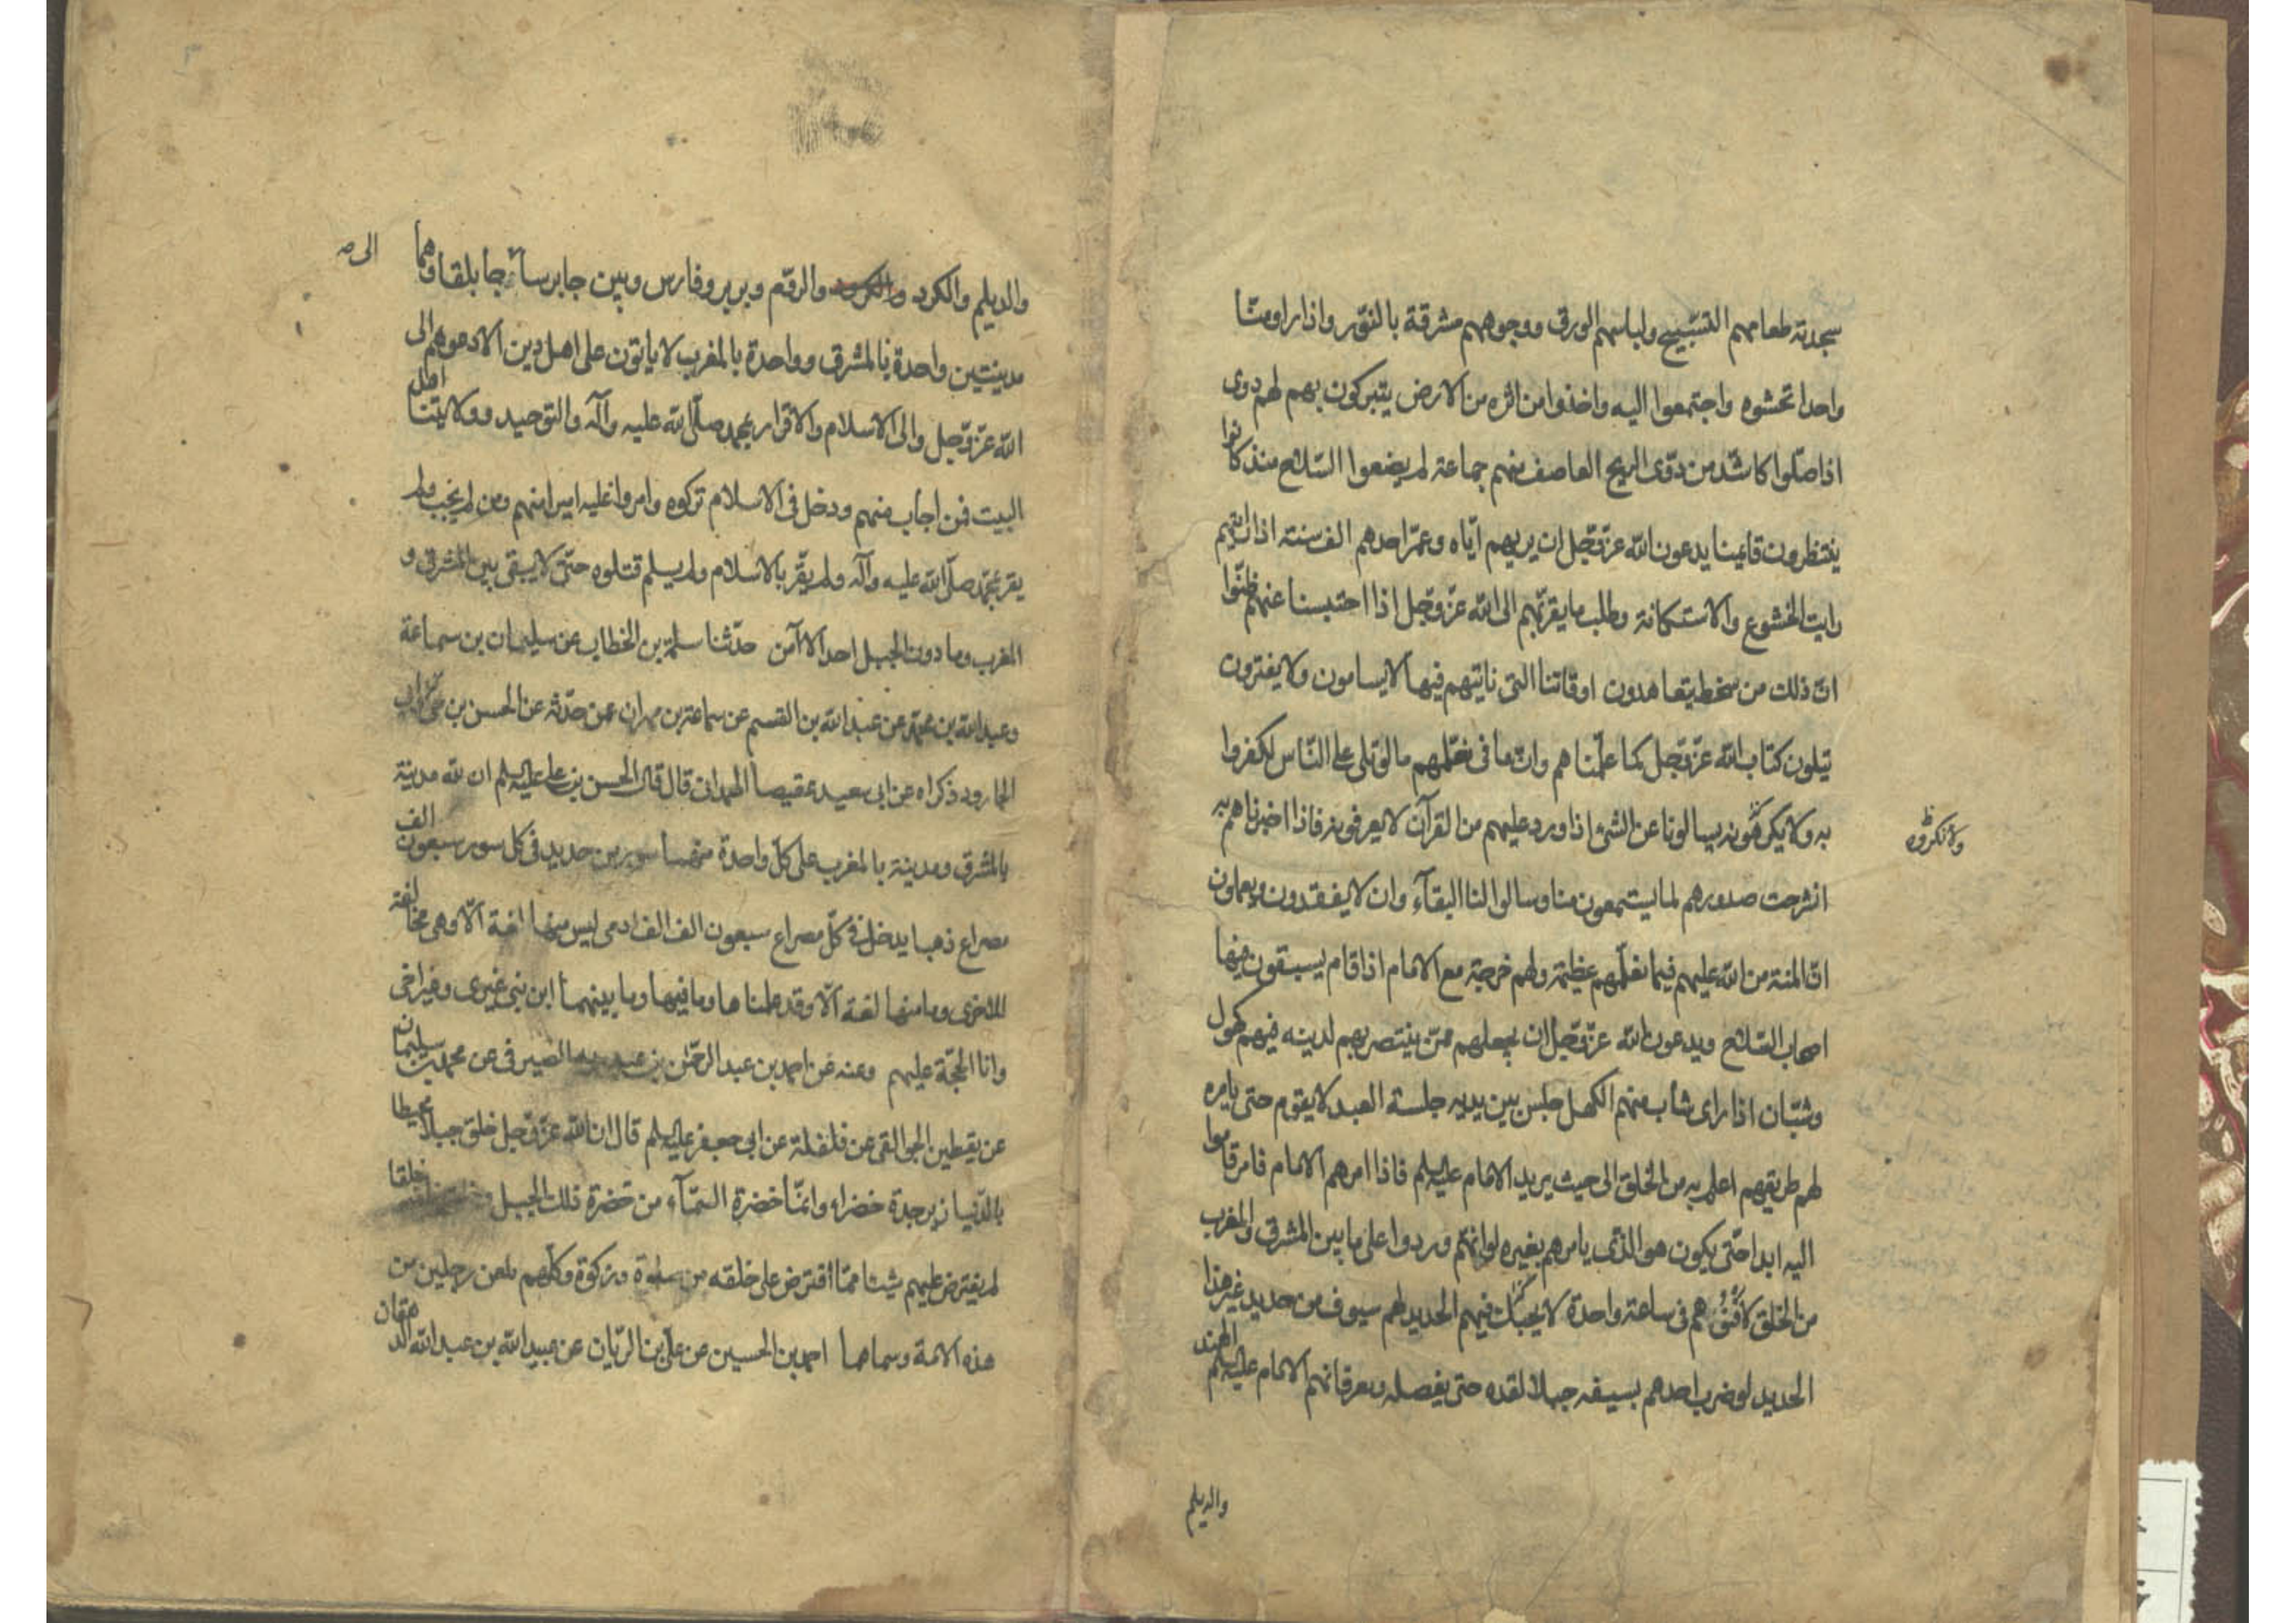 سجدته طعامهم التسبيح ولباسهم الورق ووجوههم مشرقة بالنور واذا راوا منا
واحدا تحشوه واجتمعوا اليه واخذوا من اثره من الارض يتبركون بهم لهم دوى
اذا صلوا كاشد من دوى الريح العاصف منهم جماعة لم يضعوا السلاح منذ كانوا
ينتظرون قائمنا يدعون الله عز وجل ان يريهم اياه وعمر احدهم الف سنة اذا رايتهم
رايت الخشوع والاستكانة وطلب ما يقربهم الى الله عز وجل اذا احتبسنا عنهم ظنوا
ان ذلك من سخط يتعاهدون اوقاتنا التى ناتيهم فيها لا يسامون ولا يفترون
يتلون كتاب الله عز وجل كما علمناهم وان ما فى نعلمهم ما لو تلى على الناس لكفروا
به ولا يكرهونه يسالونا عن الشئ اذا ورد عليهم من القرآن لا يعرفونه فاذا اخبرناهم به
ولانكروه
انشرحت صدورهم لما يستمعون منا وسالوا لنا البقآء وان لا يفقدون ويعلمون
ان المنة من الله عليهم فيما نعلمهم عظيمة ولهم خرجة مع الامام اذا قام يسبقون فيها
اصحاب السلاح ويدعون الله عز وجل ان يجعلهم ممن ينتصر بهم لدينه فيهم كهول
وشبان اذا راى شاب منهم الكهل جلس بين يديه جلسة العبد لا يقوم حتى يامره
لهم طريقهم اعلم به من الخلق الى حيث يريد الامام عليه السلم فاذا امرهم الامام فامر قاموا
اليه ابدا حتى يكون هو الذى يامرهم بغيره لو انهم وردوا على ما بين المشرق والمغرب
من الخلق لافنوهم فى ساعة واحدة لا يحتك فيهم الحديد لهم سيوف من حديد غير هذا
الحديد لو ضرب احدهم بسيفه جبلا لقده حتى يفصله ويعرفانهم الامام عليه السلم الهند
والديلم
والديلم والكرد والكرد والروم وبربر وفارس وبين جابرسا جابلقا وهما
الى
مدينتين واحدة بالمشرق وواحدة بالمغرب لا ياتون على اهل دين الا دعوهم الى
الله عز وجل والى الاسلام والاقرار بمحمد صلى الله عليه وآله والتوحيد وولايتنا اهل
البيت فمن اجاب منهم ودخل فى الاسلام تركوه وامروا عليه اميرا منهم ومن لم يجب ولم
يقر بمحمد صلى الله عليه وآله ولم يقر بالاسلام ولم يسلم قتلوه حتى لا يبقى بين المشرق و
المغرب وما دون الجبل احد الا آمن حدثنا سلمة بن الخطاب عن سليمان بن سماعة
وعبد الله بن محمد عن عبد الله بن القسم عن سماعة بن مهران عمن حدثه عن الحسن بن حى وابى
الجارود ذكراه عن ابى سعيد عقيصا الهمدانى قال قال الحسن بن على عليه السلم ان لله مدينة
بالمشرق ومدينة بالمغرب على كل واحدة منهما سور من حديد فى كل سور سبعون الف
مصراع ذهبا يدخل فى كل مصراع سبعون الف الف ادمى ليس منها لغة الا وهى مخالفة
للاخرى وما منها لغة الا وقد علمناها وما فيها وما بينهما ابن نبى غيرى وغير اخى
وانا الحجة عليهم وعنه عن احمد بن عبد الرحمن بن عبد ربه الصيرفى عن محمد بن سليمان
عن يقطين الجوالقى عن فلفلة عن ابى جعفر عليه السلم قال ان الله عز وجل خلق جبلا محيطا
بالدنيا زبرجدة خضراء وانما خضرة السمآء من خضرة ذلك الجبل وخلق خلقا
لم يفترض عليهم شيئا مما افترض على خلقه من صلوة وزكوة وكلهم يلعن رجلين من
هذه الامة وسماهما احمد بن الحسين عن على بن الريان عن عبيد الله بن عبد الله الدهقان